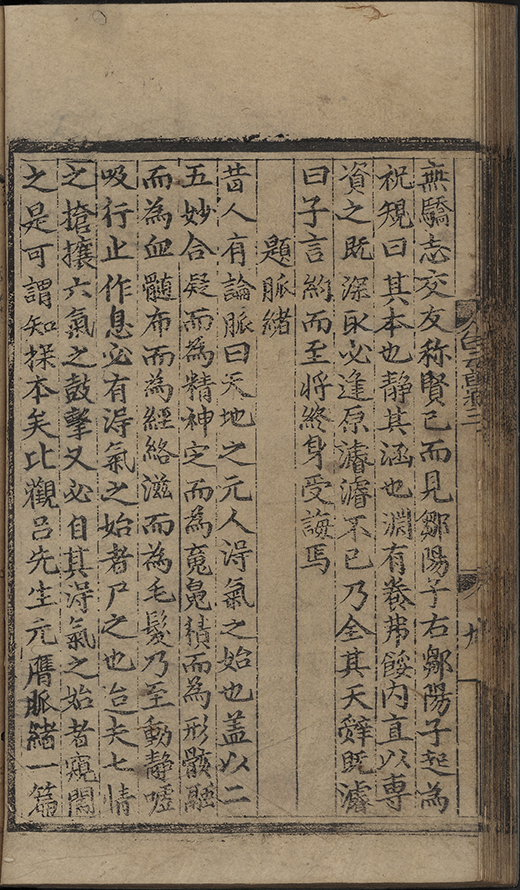 無驕志交友称賢已而見鄒陽子右鄒陽子起為
祝規曰其本也静其涵也淵有養弗餒内直以専
資之既深取必逢原濬濬不已乃全其天辤既濬
曰子言約而至将終身受誨焉
題脈緒
昔人有論脈曰天地之元人淂氣之始也盖以二
五妙合疑而為精神㝎而為䰟㒵積而為形骸融
而為血髓布而為經絡滋而為毛髪乃至動静嘘
吸行止作息必有淂氣之始者尸之也迨夫七情
之搶攘六氣之鼓撃又必自其淂氣之始者窺闖
之是可謂知探本矣比觀吕先生元膺脈緒一篇